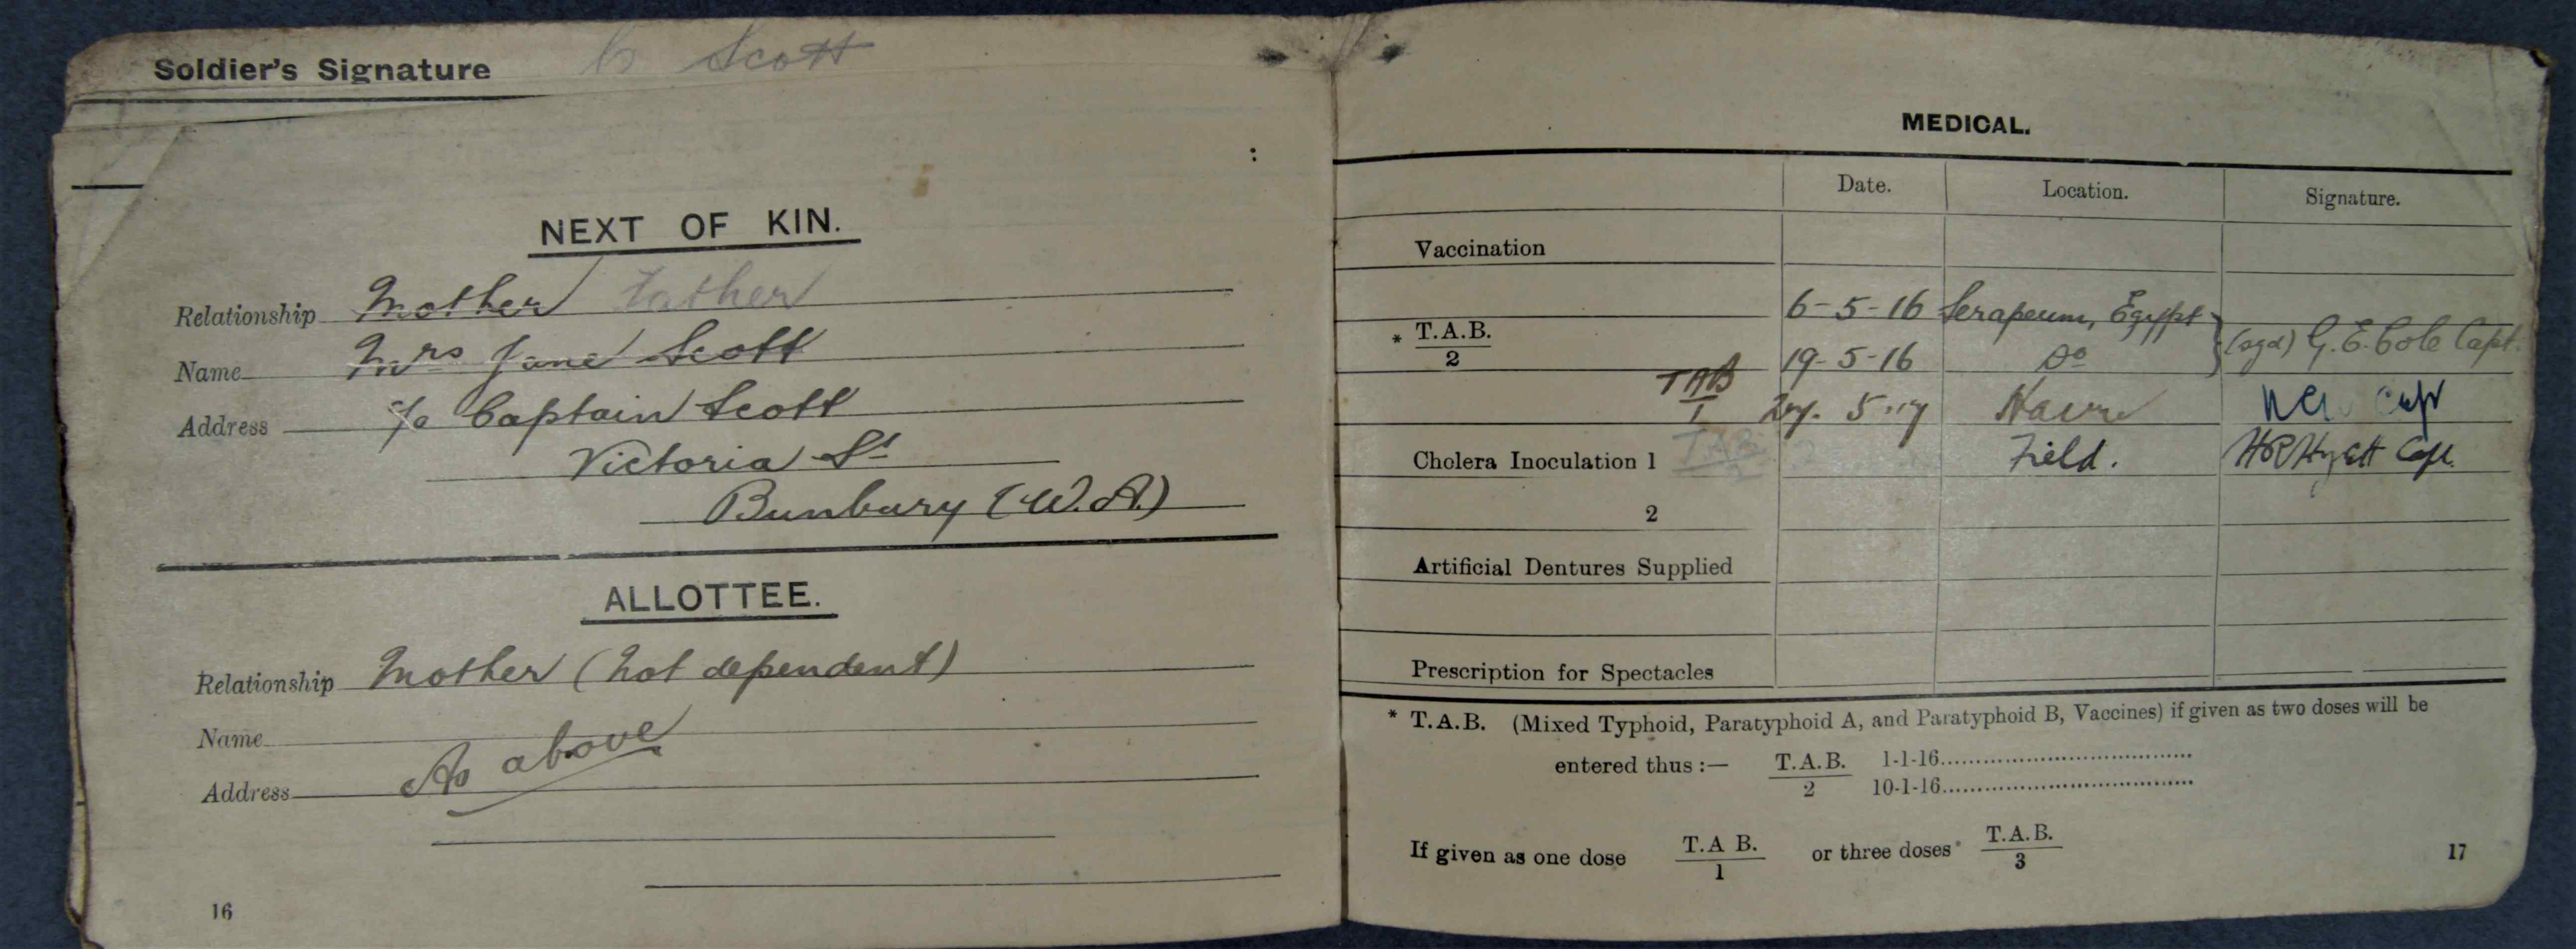 Soldier's Signature C Scott
NEXT OF KIN.
Relationship Mother Father
Name Mrs Jane Scott
Address c/o Captain Scott
Victoria St
Bunbury (W.A.)
ALLOTTEE.
Relationship Mother (not dependent)
Name
As above
Address
16
MEDICAL.
Date. Location. Signature.
Vaccination
6-5-16 Serapeum, Egypt
* T.A.B.
2
(sgd) G.E. Cole Capt.
19-5-16 Do
TAB
1
27. 5.17 Havre Capt
Cholera Inoculation 1 T.A.B.
2
Field. Hyett Capt.
2
Artificial Dentures Supplied
Prescription for Spectacles
* T.A.B. (Mixed Typhoid, Paratyphoid A, and Paratyphoid B, Vaccines) if given as two doses will be
entered thus :— T.A.B. 1-1-16
2 10-1-16
If given as one dose T.A B. or three doses T.A.B.
1 3
17